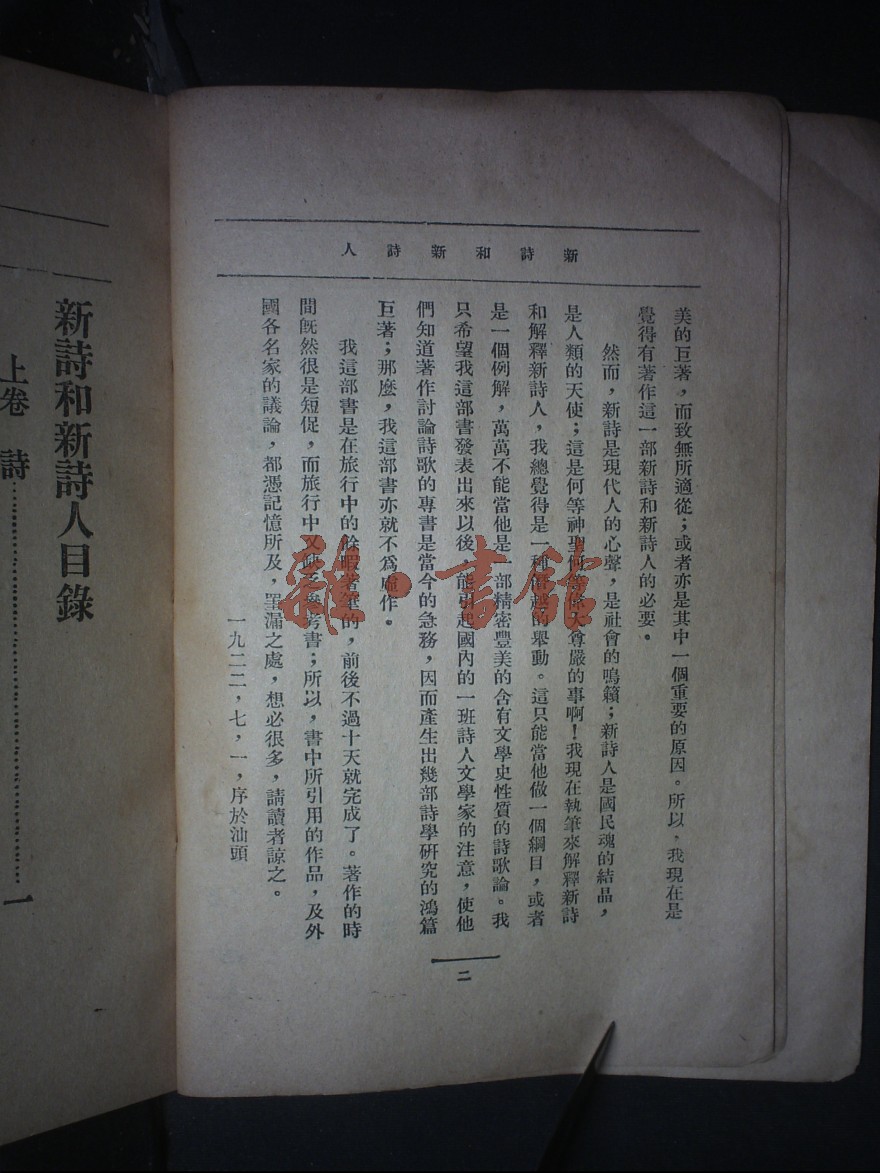 新詩和新詩人
美的巨著，而致無所適從；或者亦是其中一個重要的原因。所以，我現在是
覺得有著作這一部新詩和新詩人的必要。
然而，新詩是現代人的心聲，是社會的鳴籟；新詩人是國民魂的結晶，
是人類的天使；這是何等神聖何等偉大尊嚴的事啊！我現在執筆來解釋新詩
和解釋新詩人，我總覺得是一種僭越的舉動。這只能當他做一個綱目，或者
是一個例解，萬萬不能當他是一部精密豐美的含有文學史性質的詩歌論。我
只希望我這部書發表出來以後，能引起國內的一班詩人文學家的注意，使他
們知道著作討論詩歌的專書是當今的急務，因而產生出幾部詩學研究的鴻篇
巨著；那麼，我這部書亦就不爲虛作。
我這部書是在旅行中的餘暇著筆的，前後不過十天就完成了。著作的時
間旣然很是短促，而旅行中又缺乏參考書；所以，書中所引用的作品，及外
國各名家的議論，都憑記憶所及，罣漏之處，想必很多，請讀者諒之。
一九二二，七，一，序於汕頭
二
新詩和新詩人目錄
上卷　詩……………………………一
雜·書館